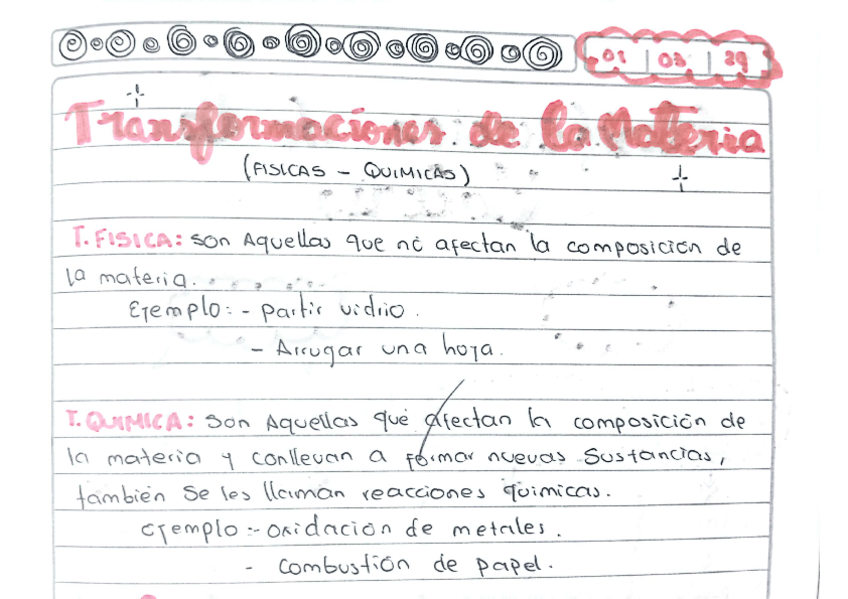 01 | 03 | 29
Transformaciones de la Materia
(FISICAS - QUIMICAS)
T. FISICA: son Aquellas que no afectan la composición de
la materia.
Ejemplo: - Partir vidrio.
- Arrugar una hoja.
T. QUIMICA: Son Aquellas que afectan la composición de
la materia y conllevan a formar nuevas sustancias,
también se les llaman reacciones químicas.
ejemplo:- oxidación de metales.
- combustión de papel.